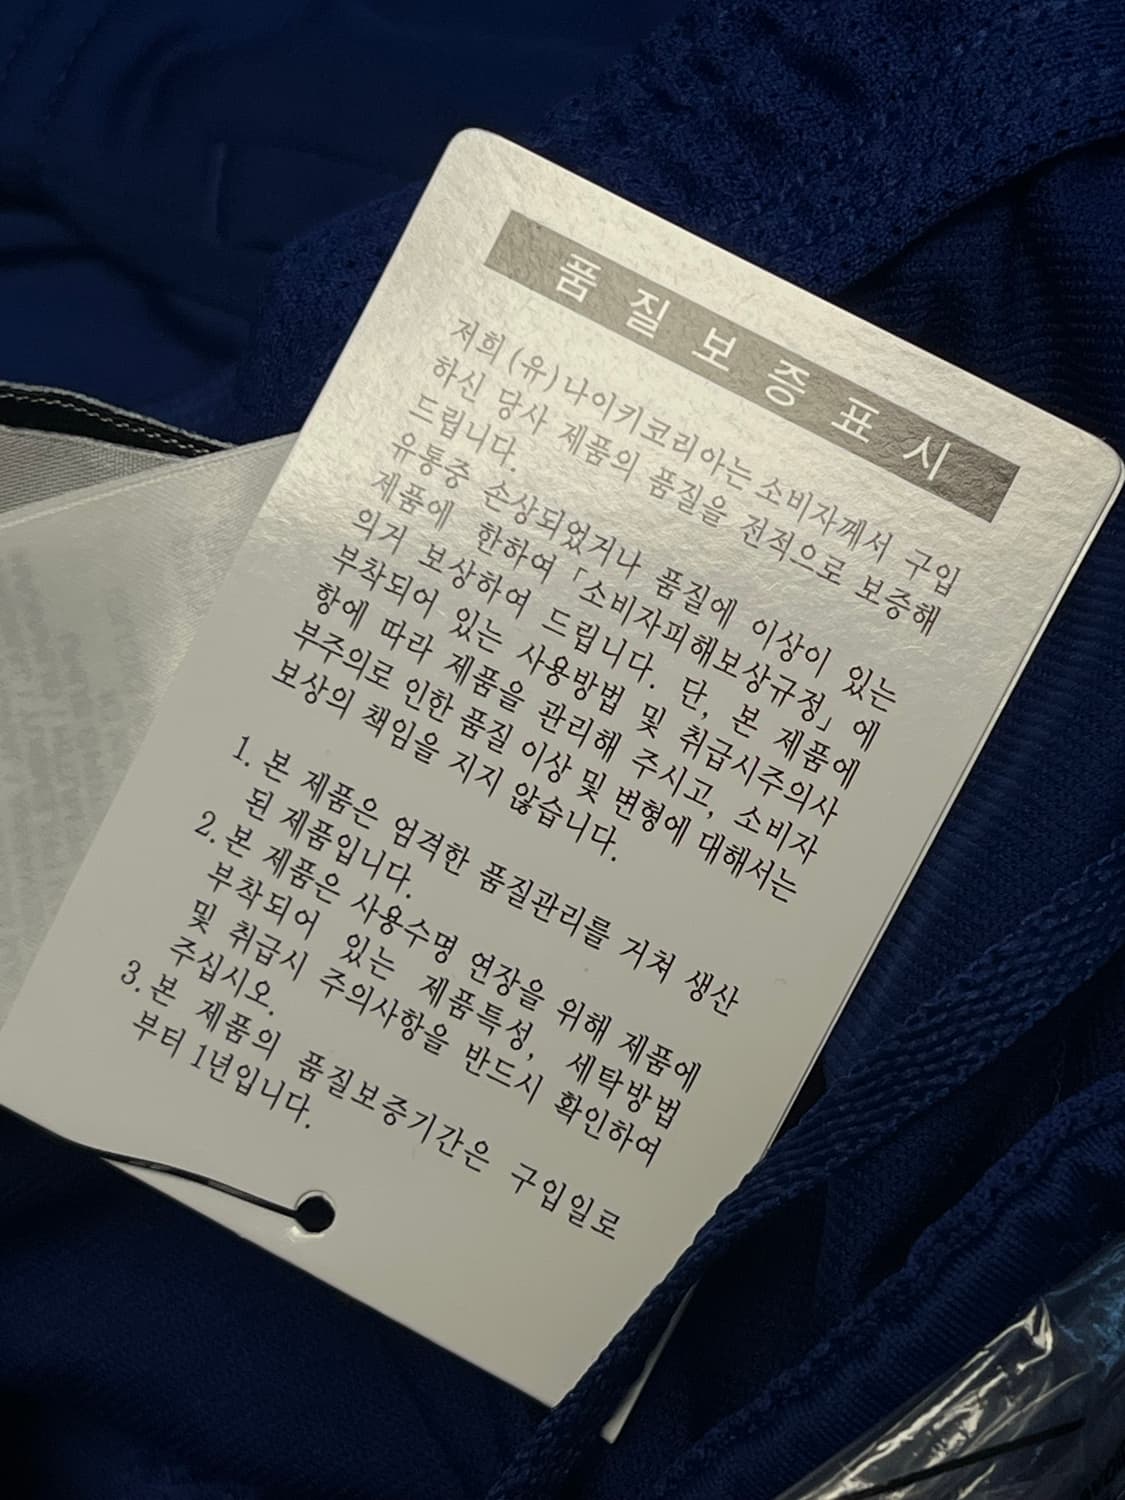 품질보증표시
저희(유)나이키코리아는 소비자께서 구입
하신 당사 제품의 품질을 전적으로 보증해
드립니다.
유통중 손상되었거나 품질에 이상이 있는
제품에 한하여 「소비자피해보상규정」에
의거 보상하여 드립니다. 단, 본 제품에
부착되어 있는 사용방법 및 취급시주의사
항에 따라 제품을 관리해 주시고, 소비자
부주의로 인한 품질 이상 및 변형에 대해서는
보상의 책임을 지지 않습니다.
1. 본 제품은 엄격한 품질관리를 거쳐 생산
된 제품입니다.
2. 본 제품은 사용수명 연장을 위해 제품에
부착되어 있는 제품특성, 세탁방법
및 취급시 주의사항을 반드시 확인하여
주십시오.
3. 본 제품의 품질보증기간은 구입일로
부터 1년입니다.